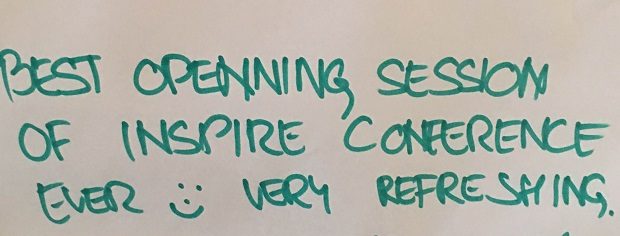 BEST OPENNING SESSION
OF INSPIRE CONFERENCE
EVER :) VERY REFRESHING.